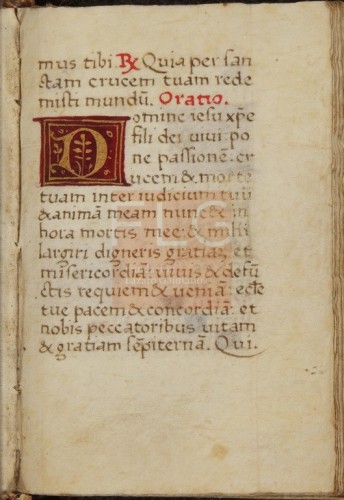 mus tibi. ℞ Quia per san
ctam crucem tuam rede
misti mundū. Oratio.
Domine iesu xp̄e
fili dei vivi po
ne passionē. cr
ucem & mortē
tuam inter iudicium tuū
& animā meam nunc & in
hora mortis mee: & mihi
largiri digneris gratiaʒ et
misericordiā: vivis & defū
ctis requiem & veniā: eccl̄e
tue pacem & concordiā: et
nobis peccatoribus vitam
& gratiam sēpiternā. Qui.